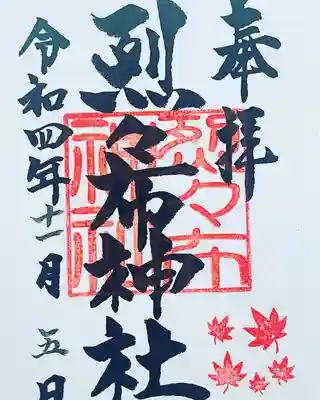 奉拝
烈々布神社
烈々布
神社
令和四年十一月五日